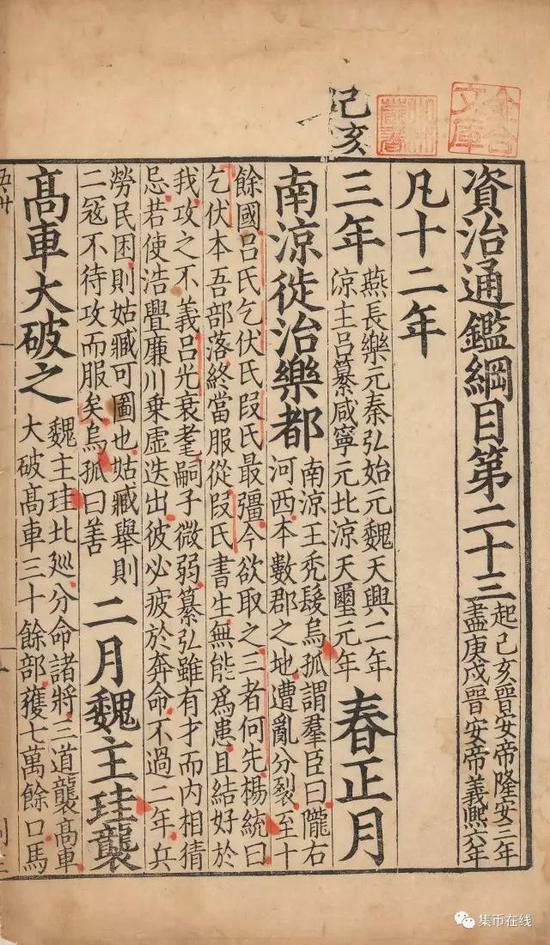 己亥
資治通鑑綱目第二十三
起己亥晉安帝隆安三年
盡庚戌晉安帝義熙六年
凡十二年
三年
燕長樂元秦弘始元魏天興二年
涼王呂纂咸寧元北涼天璽元年
春正月
南涼徙治樂都
南涼王禿髮烏孤謂羣臣曰隴右
河西本數郡之地遭亂分裂至十
餘國呂氏乞伏氏段氏最彊今欲取之三者何先楊統曰
乞伏本吾部落終當服從段氏書生無能爲患且結好於
我攻之不義呂光衰耄嗣子微弱纂弘雖有才而内相猜
忌若使浩亹廉川乗虛迭出彼必疲於奔命不過二年兵
勞民困則姑臧可圖也姑臧舉則
二冦不待攻而服矣烏孤曰善
二月魏主珪襲
髙車大破之
魏主珪北廵分命諸將三道襲髙車
大破髙車三十餘部獲七萬餘口馬
集币在线